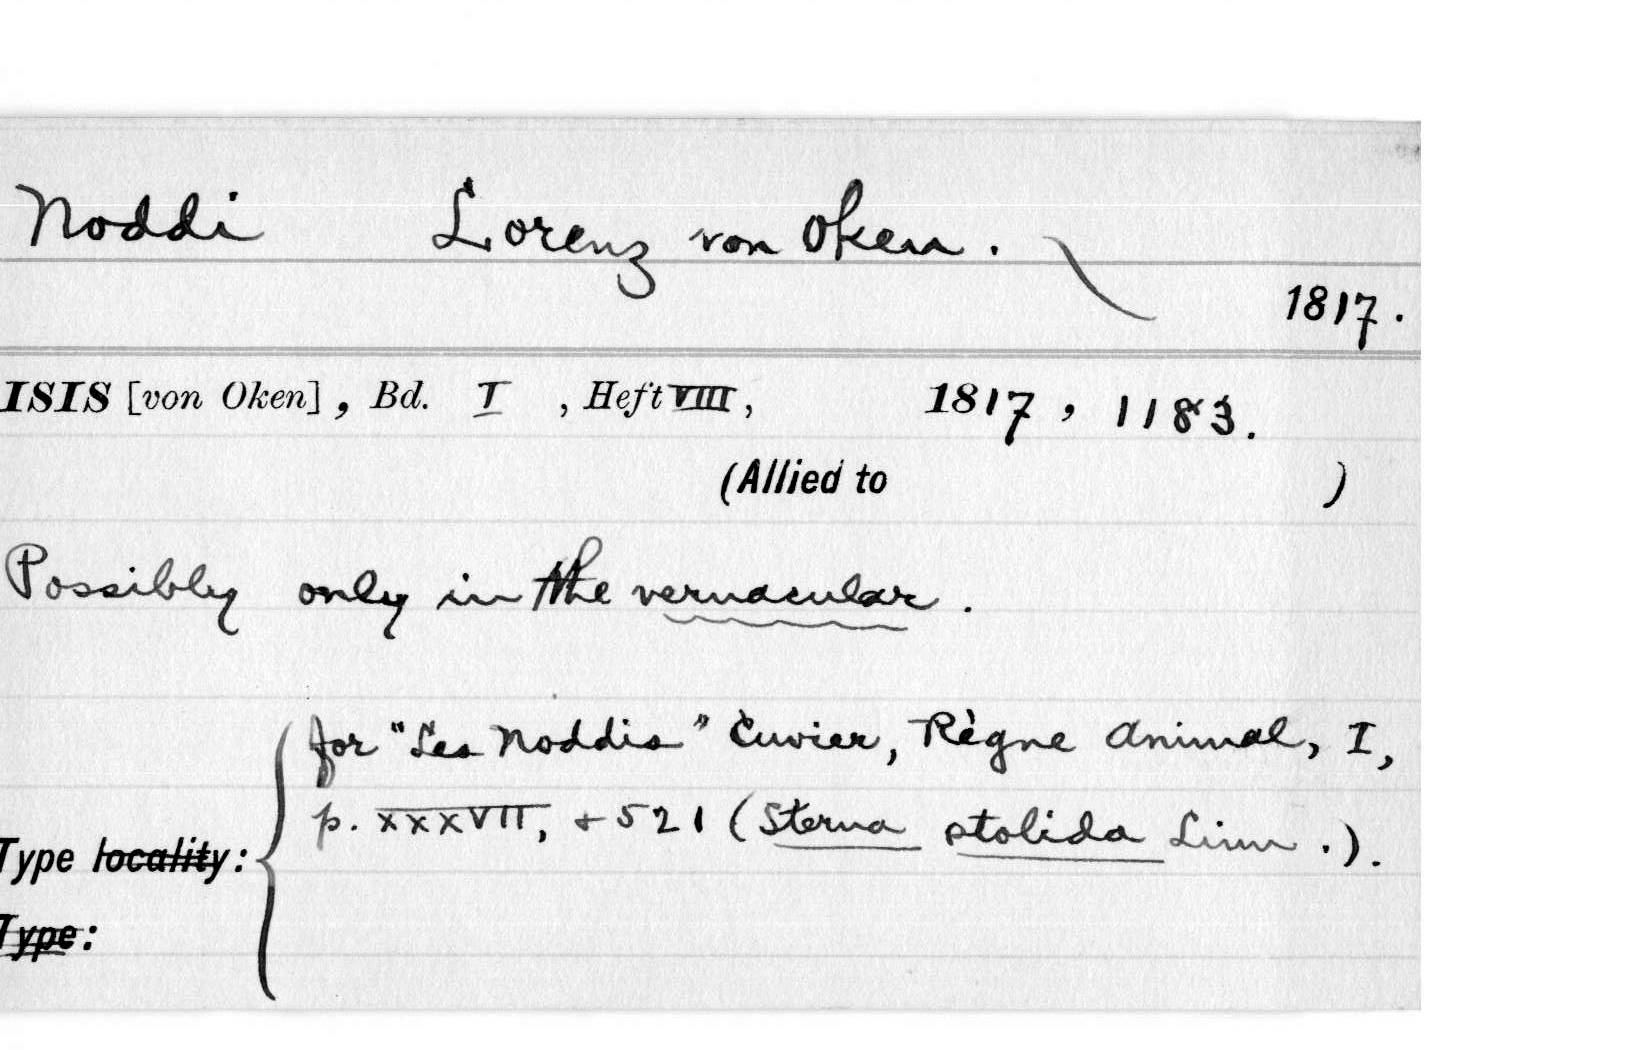 Noddi Lorenz von Oken.
1817.
ISIS [von Oken], Bd. I, Heft VIII, 1817, 1183.
(Allied to )
Possibly only in the vernacular.
for "Les Noddis" Cuvier, Règne Animal, I,
p. XXXVII, + 521 (Sterna stolida Linn.).
Type locality:
Type: